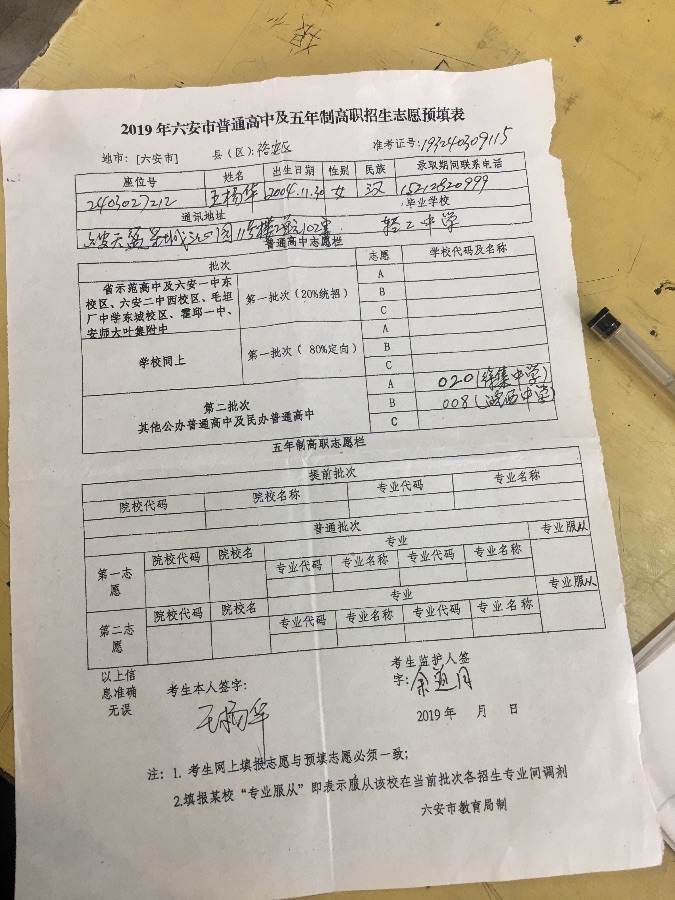 2019年六安市普通高中及五年制高职招生志愿预填表
地市：[六安市] 县（区）：裕安区 准考证号：193240309115
座位号 姓名 出生日期 性别 民族 录取期间联系电话
2403027212 王杨华 2004.11.30 女 汉 15212820999
通讯地址 毕业学校
11号楼2单元102室 轻工中学
普通高中志愿栏
批次 志愿 学校代码及名称
省示范高中及六安一中东校区、六安二中西校区、毛坦厂中学东城校区、霍邱一中、安师大叶集附中 第一批次（20%统招） A
B
C
学校同上 第一批次（ 80%定向） A
B
C
第二批次 A 020(徐集中学)
其他公办普通高中及民办普通高中 B 008(皖西中学)
C
五年制高职志愿栏
提前批次
院校代码 院校名称 专业代码 专业名称
普通批次
第一志愿 院校代码 院校名 专业 专业服从
专业代码 专业名称 专业代码 专业名称
第二志愿 院校代码 院校名 专业 专业服从
专业代码 专业名称 专业代码 专业名称
以上信息准确无误 考生本人签字： 王杨华 考生监护人签字：
2019年 月 日
注：1.考生网上填报志愿与预填志愿必须一致；
2.填报某校“专业服从”即表示服从该校在当前批次各招生专业间调剂
六安市教育局制